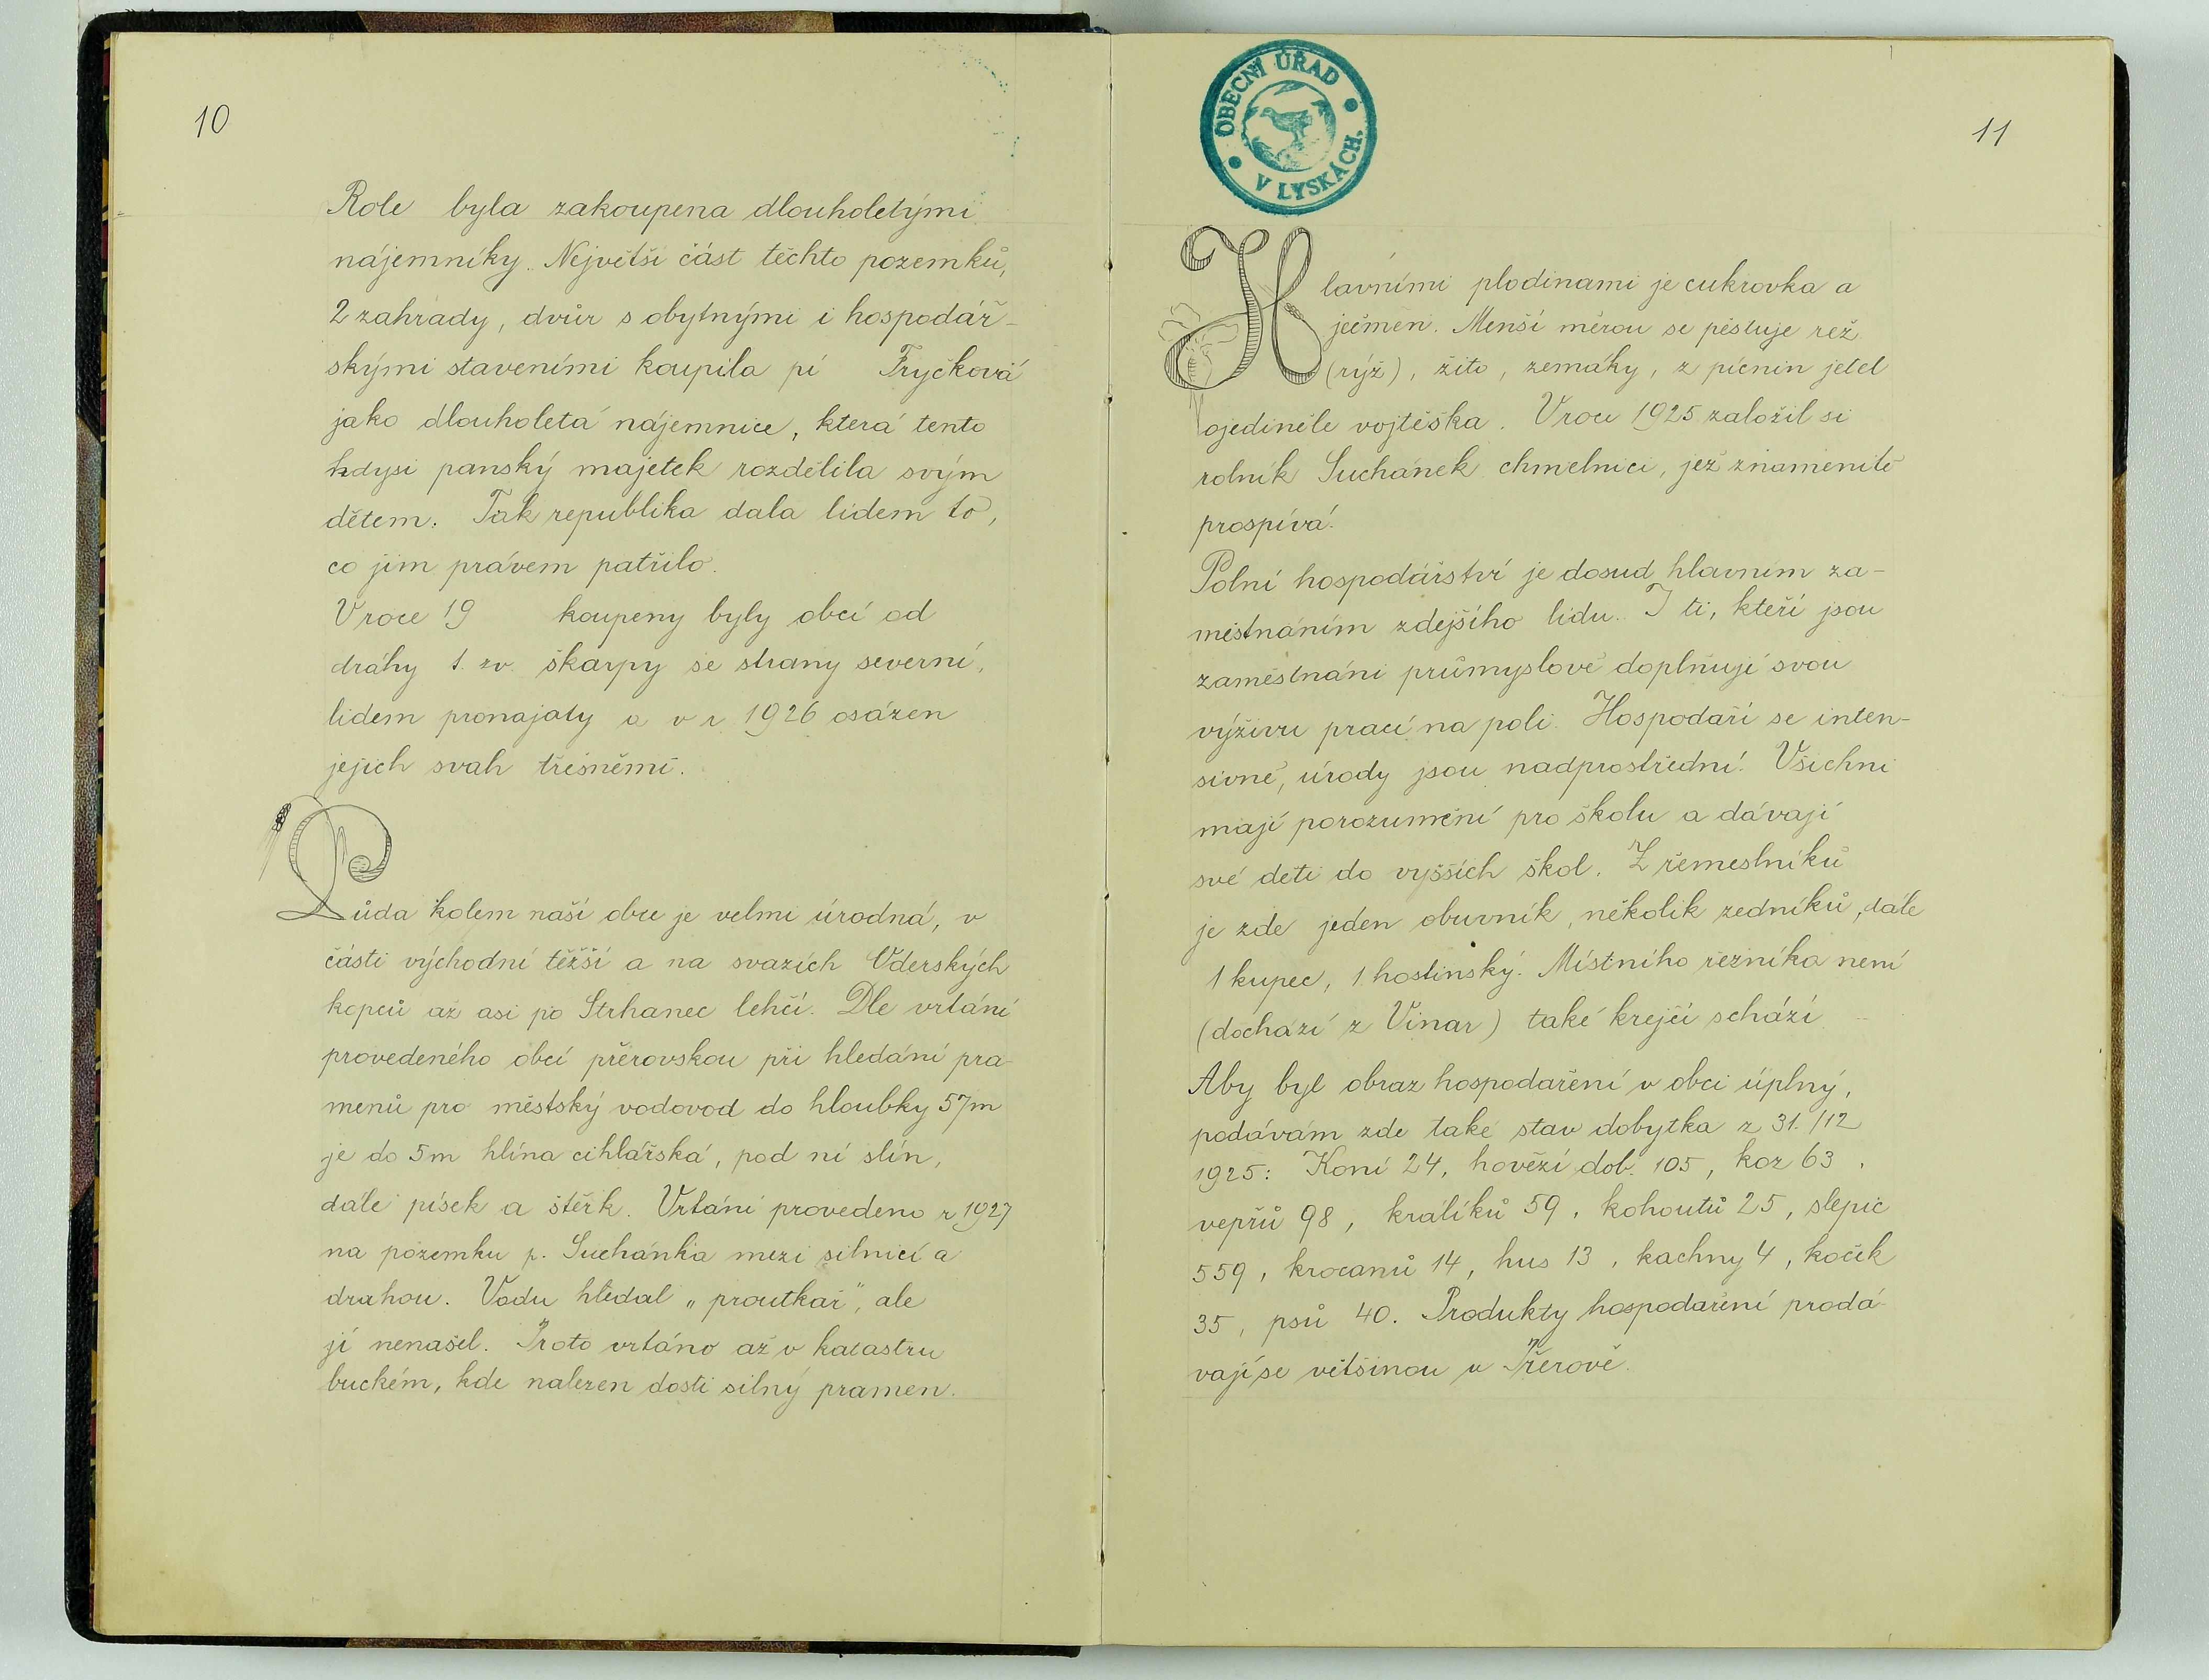 10
Role byla zakoupena dlouholetými
nájemníky. Největší část těchto pozemků,
2 zahrady, dvůr s obytnými i hospodář-
skými staveními koupila pí Fryčková
jako dlouholetá nájemnice, která tento
kdysi panský majetek rozdělila svým
dětem. Tak republika dala lidem to,
co jim právem patřilo.
V roce 19 koupeny byly obcí od
dráhy t. zv. škarpy se strany severní,
lidem pronajaty a v r. 1926 osázen
jejich svah třešněmi.
Půda kolem naší obce je velmi úrodná, v
části východní těžší a na svazích
kopců až asi po Strhanec lehčí. Dle vrtání
provedeného obcí přerovskou při hledání pra-
menů pro městský vodovod do hloubky 57m
je do 5m hlína cihlářská, pod ní slín,
dále písek a štěrk. Vrtání provedeno r 1927
na pozemku p. Suchánka mezi silnicí a
drahou. Vodu hledal „proutkař", ale
jí nenašel. Proto vrtáno až v katastru
buckém, kde nalezen dosti silný pramen.
OBECNÍ ÚŘAD
V LYSKÁCH.
11
Hlavními plodinami je cukrovka a
ječmen. Menší měrou se pěstuje rež
(rýž), žito, zemáky, z pícnin jetel
ojediněle vojtěška. V roce 1925 založil si
rolník Suchánek chmelnici, jež znamenitě
prospívá.
Polní hospodářství je dosud hlavním za-
městnáním zdejšího lidu. I ti, kteří jsou
zaměstnáni průmyslově doplňují svou
výživu prací na poli. Hospodaří se inten-
sivně, úrody jsou nadprostřední. Všichni
mají porozumění pro školu a dávají
své děti do vyšších škol. Z řemeslníků
je zde jeden obuvník, několik zedníků, dále
1 kupec, 1 hostinský. Místního řezníka není
(dochází z Vinar) také krejčí schází
Aby byl obraz hospodaření v obci úplný,
podávám zde také stav dobytka z 31./12
1925: Koní 24, hovězí dob. 105, koz 63,
vepřů 98, králíků 59, kohoutů 25, slepic
559, krocanů 14, hus 13, kachny 4, koček
35, psů 40. Produkty hospodaření prodá-
vají se většinou v Přerově.